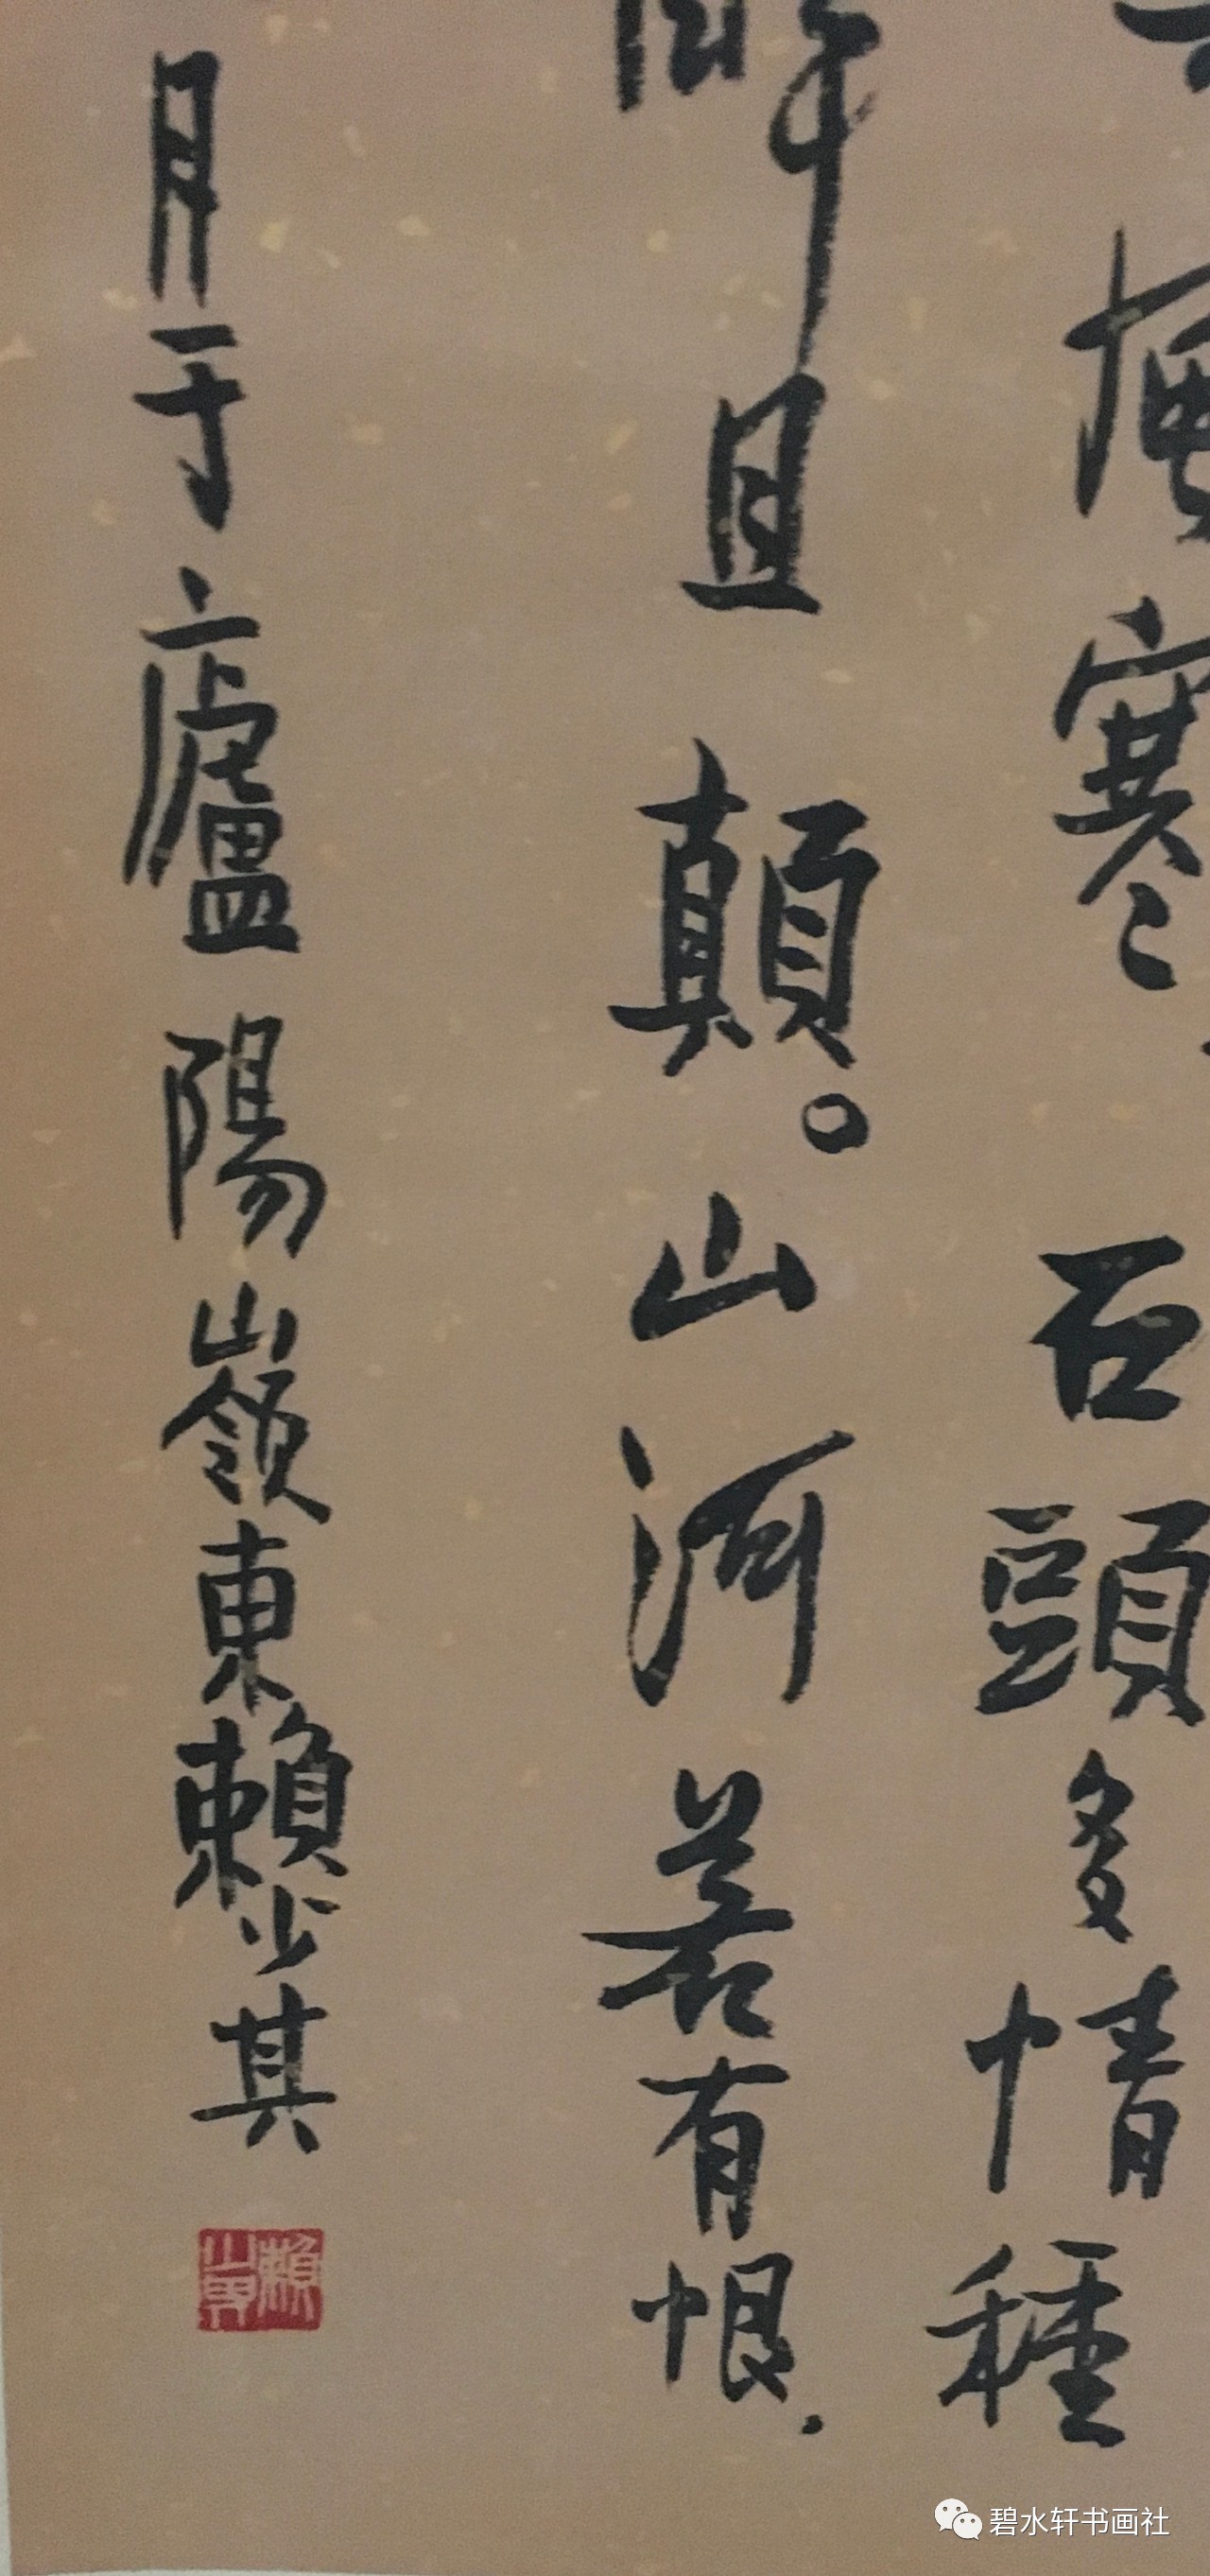 寒石頭多情種
醉且顛。山河若有恨.
月于廬陽山嶺東賴少其
碧水轩书画社